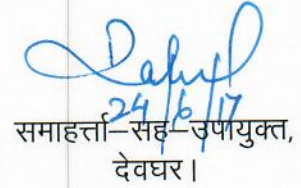 24/6/17
समाहर्त्ता–सह–उपायुक्त,
देवघर।